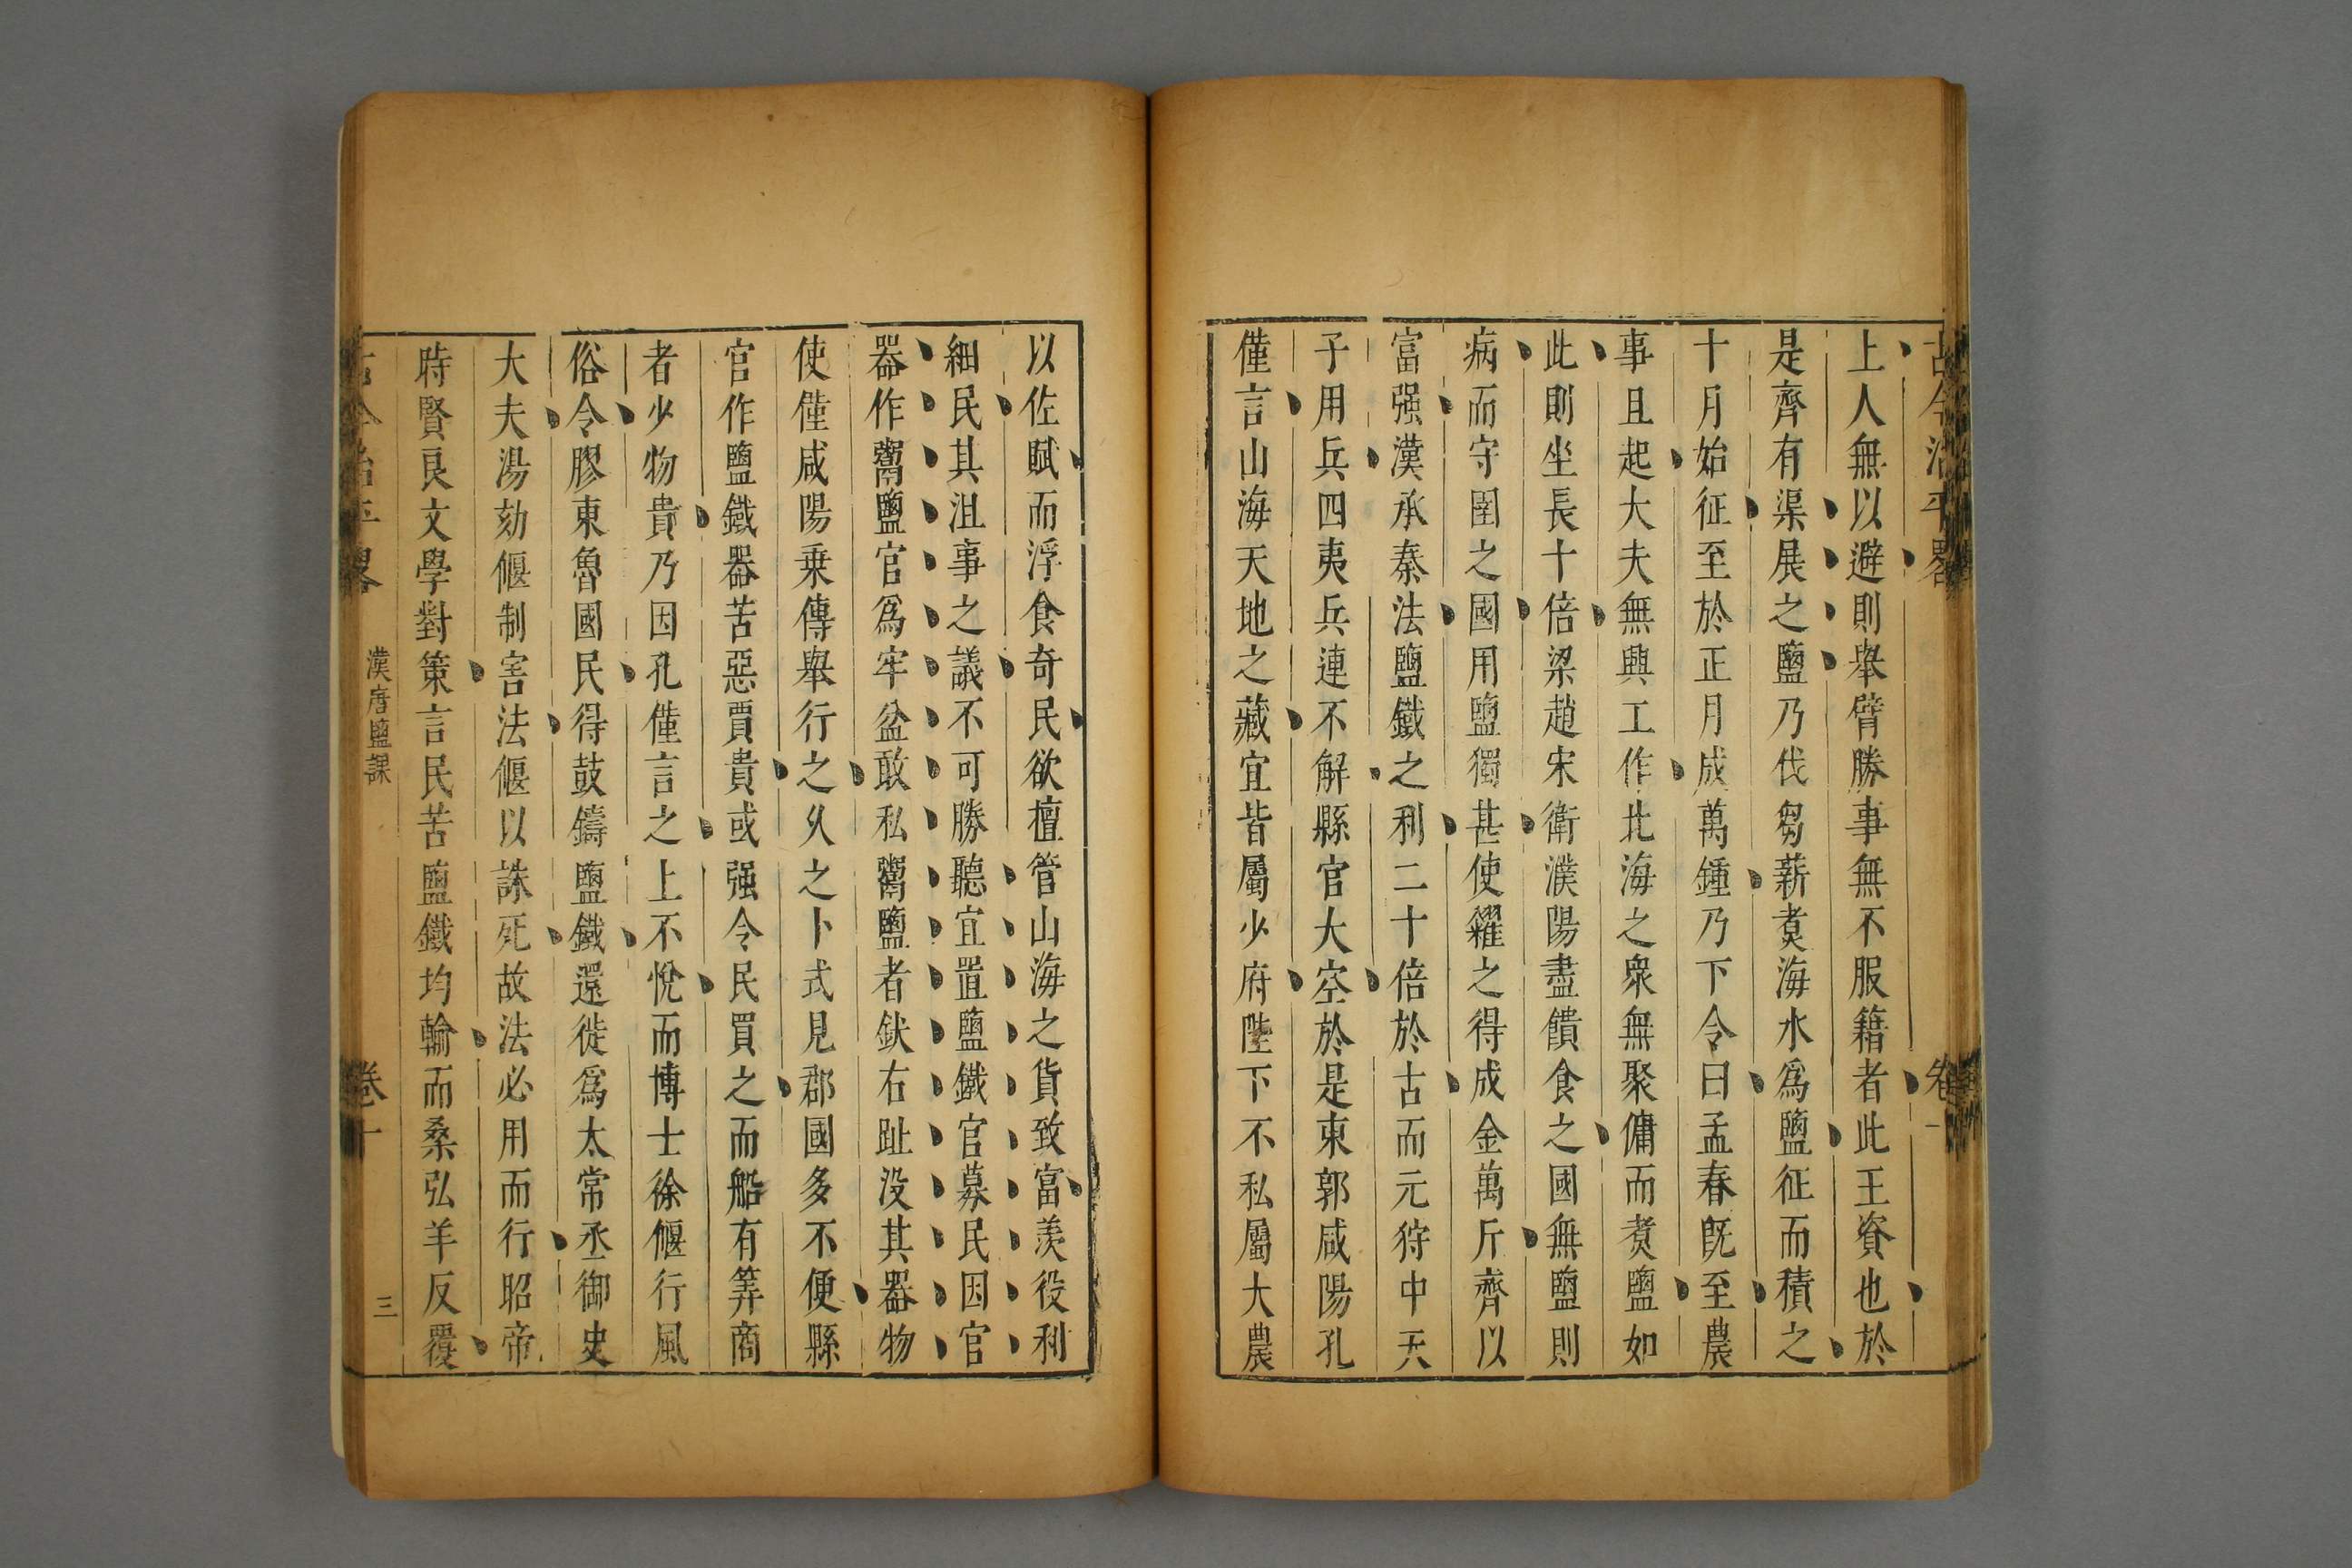 古今治平畧
卷
上人無以避則舉臂勝事無不服籍者此王資也於
是齊有渠展之鹽乃伐芻薪煑海水爲鹽征而積之
十月始征至於正月成萬鍾乃下令曰孟春旣至農
事且起大夫無興工作北海之衆無聚傭而煑鹽如
此則坐長十倍梁趙宋衛濮陽盡饋食之國無鹽則
病而守圉之國用鹽獨甚使糴之得成金萬斤齊以
富强漢承秦法鹽鐵之利二十倍於古而元狩中天
子用兵四夷兵連不解縣官大空於是東郭咸陽孔
僅言山海天地之藏宜皆屬少府陛下不私屬大農
以佐賦而浮食奇民欲擅管山海之貨致富羨役利
細民其沮事之議不可勝聽宜置鹽鐵官募民因官
器作鬻鹽官爲牢盆敢私鬻鹽者釱右趾没其器物
使僅咸陽乗傳舉行之久之卜式見郡國多不便縣
官作鹽鐵器苦惡賈貴或强令民買之而船有筭商
者少物貴乃因孔僅言之上不悅而博士徐偃行風
俗令膠東魯國民得鼓鑄鹽鐵還徙爲太常丞御史
大夫湯劾偃制害法偃以誅死故法必用而行昭帝
時賢良文學對策言民苦鹽鐵均輸而桑弘羊反覆
古今治平畧
漢唐鹽課
卷十
三